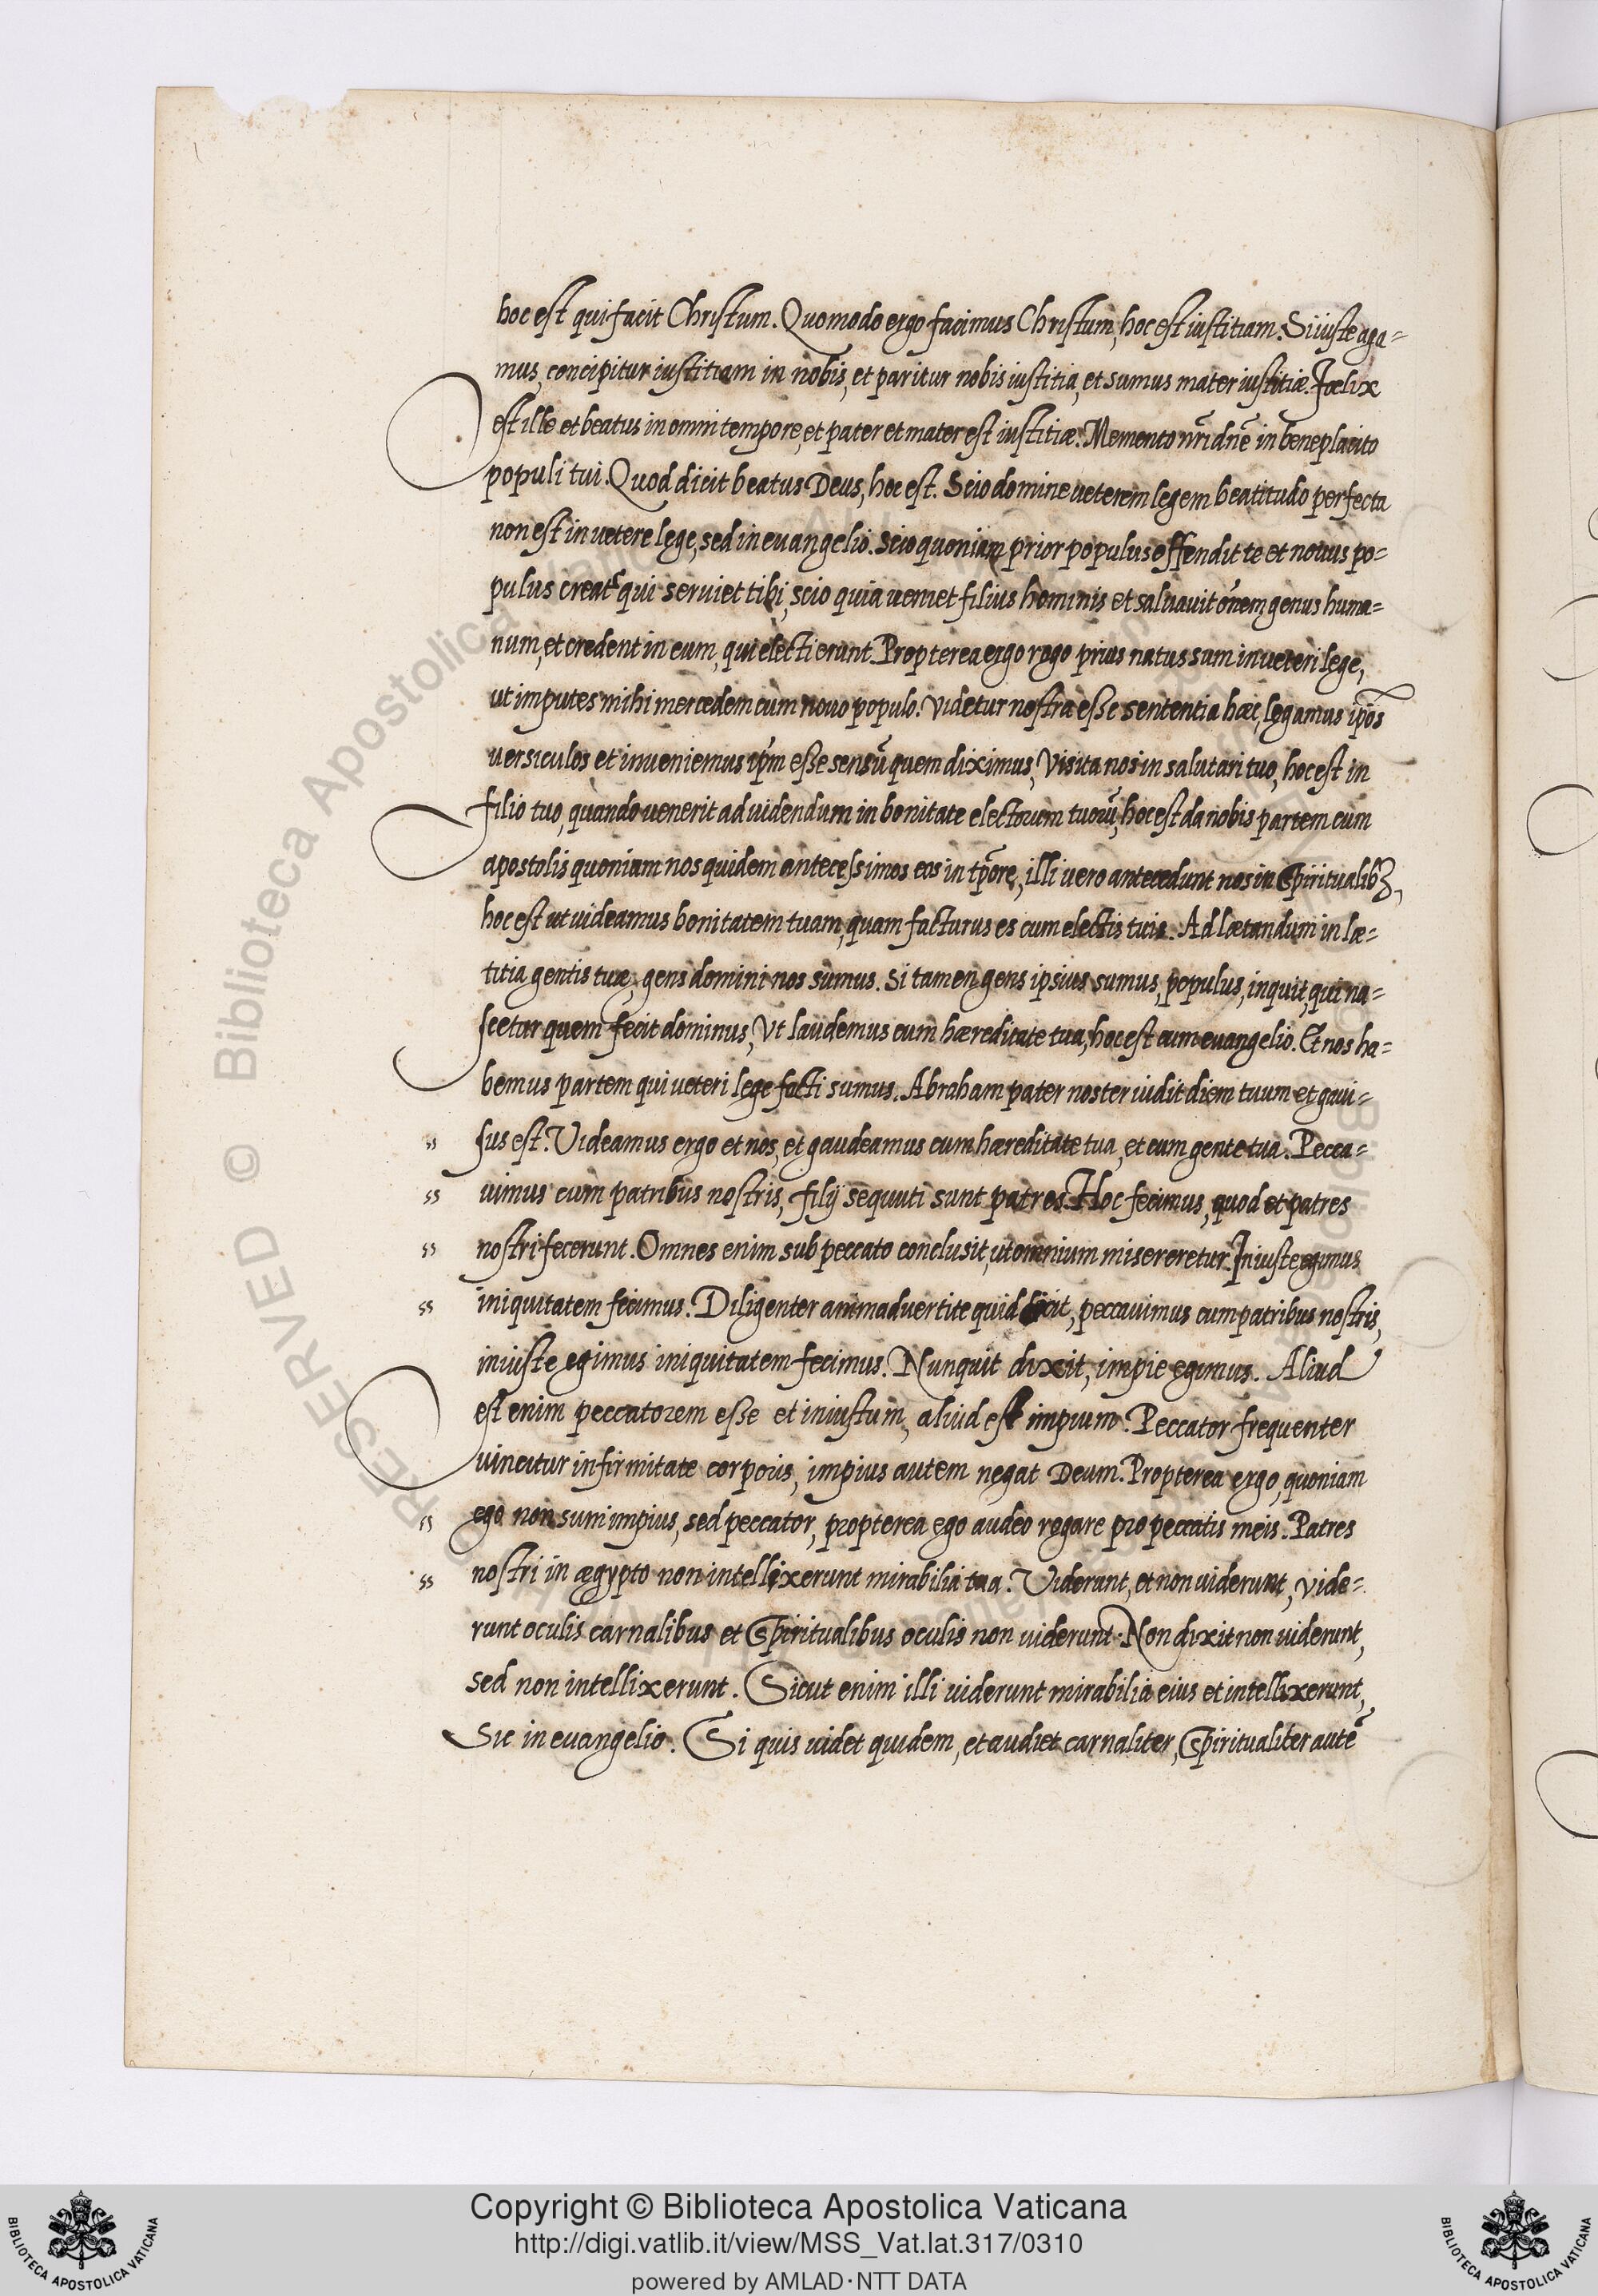 hoc est qui facit Christum. Quomodo ergo facimus Christum, hoc est iustitiam. Si iuste aga=
mus, concipitur iustitiam in nobis, et paritur nobis iustitia, et sumus mater iustitiæ. Fœlix
est ille et beatus in omni tempore, et pater et mater est iustitiæ. Memento nr̃i dñe in beneplacito
populi tui. Quod dicit beatus Deus, hoc est. Scio domine veterem legem beatitudo perfecta
non est in vetere lege, sed in evangelio. Scio quoniam prior populus offendit te et novus po=
pulus creat᷑ qui serviet tibi, scio quia veniet filius hominis et salvavit om̃em genus huma=
num, et credent in eum, qui electi erunt. Propterea ergo rogo prius natus sum in veteri lege,
ut imputes mihi mercedem cum novo populo. Videtur nostra esse sententia hæc, legamus ip̃os
versiculos et inveniemus ip̃m esse sensũ quem diximus, Visita nos in salutari tuo, hoc est in
filio tuo, quando venerit ad videndum in bonitate electorum tuorũ, hoc est da nobis partem cum
apostolis quoniam nos quidem antecessimos eos in tp̃ore, illi vero antecedunt nos in Spiritualibꝫ,
hoc est ut videamus bonitatem tuam, quam facturus es cum electis tuis. Ad lætandum in læ=
titia gentis tuæ, gens domini nos sumus. Si tamen gens ipsius sumus, populus, inquit, qui na=
scetur quem fecit dominus, Ut laudemus cum hæreditate tua, hoc est cum evangelio. Et nos ha=
bemus partem qui veteri lege facti sumus. Abraham pater noster vidit diem tuum et gavi=
sus est. Videamus ergo et nos, et gaudeamus cum hæreditate tua, et cum gente tua. Pecca=
vimus cum patribus nostris, filij sequuti sunt patres. Hoc fecimus, quod et patres
nostri fecerunt. Omnes enim sub peccato conclusit, ut omnium misereretur. Iniuste egimus
iniquitatem fecimus. Diligenter animadvertite quid dicit, peccavimus cum patribus nostris,
iniuste egimus iniquitatem fecimus. Nunquit dixit, impie egimus. Aliud
est enim peccatorem esse et iniustum, aliud est impium. Peccator frequenter
vincitur infirmitate corporis, impius autem negat Deum. Propterea ergo, quoniam
ego non sum impius, sed peccator, propterea ego audeo rogare pro peccatis meis. Patres
nostri in ægypto non intellixerunt mirabilia tua. Viderunt, et non viderunt, vide=
runt oculis carnalibus et Spiritualibus oculis non viderunt. Non dixit non viderunt,
sed non intellixerunt. Sicut enim illi viderunt mirabilia eius et intellixerunt,
Sic in evangelio. Si quis videt quidem, et audiet carnaliter, Spiritualiter autẽ
Copyright © Biblioteca Apostolica Vaticana
http://digi.vatlib.it/view/MSS_Vat.lat.317/0310
powered by AMLAD·NTT DATA